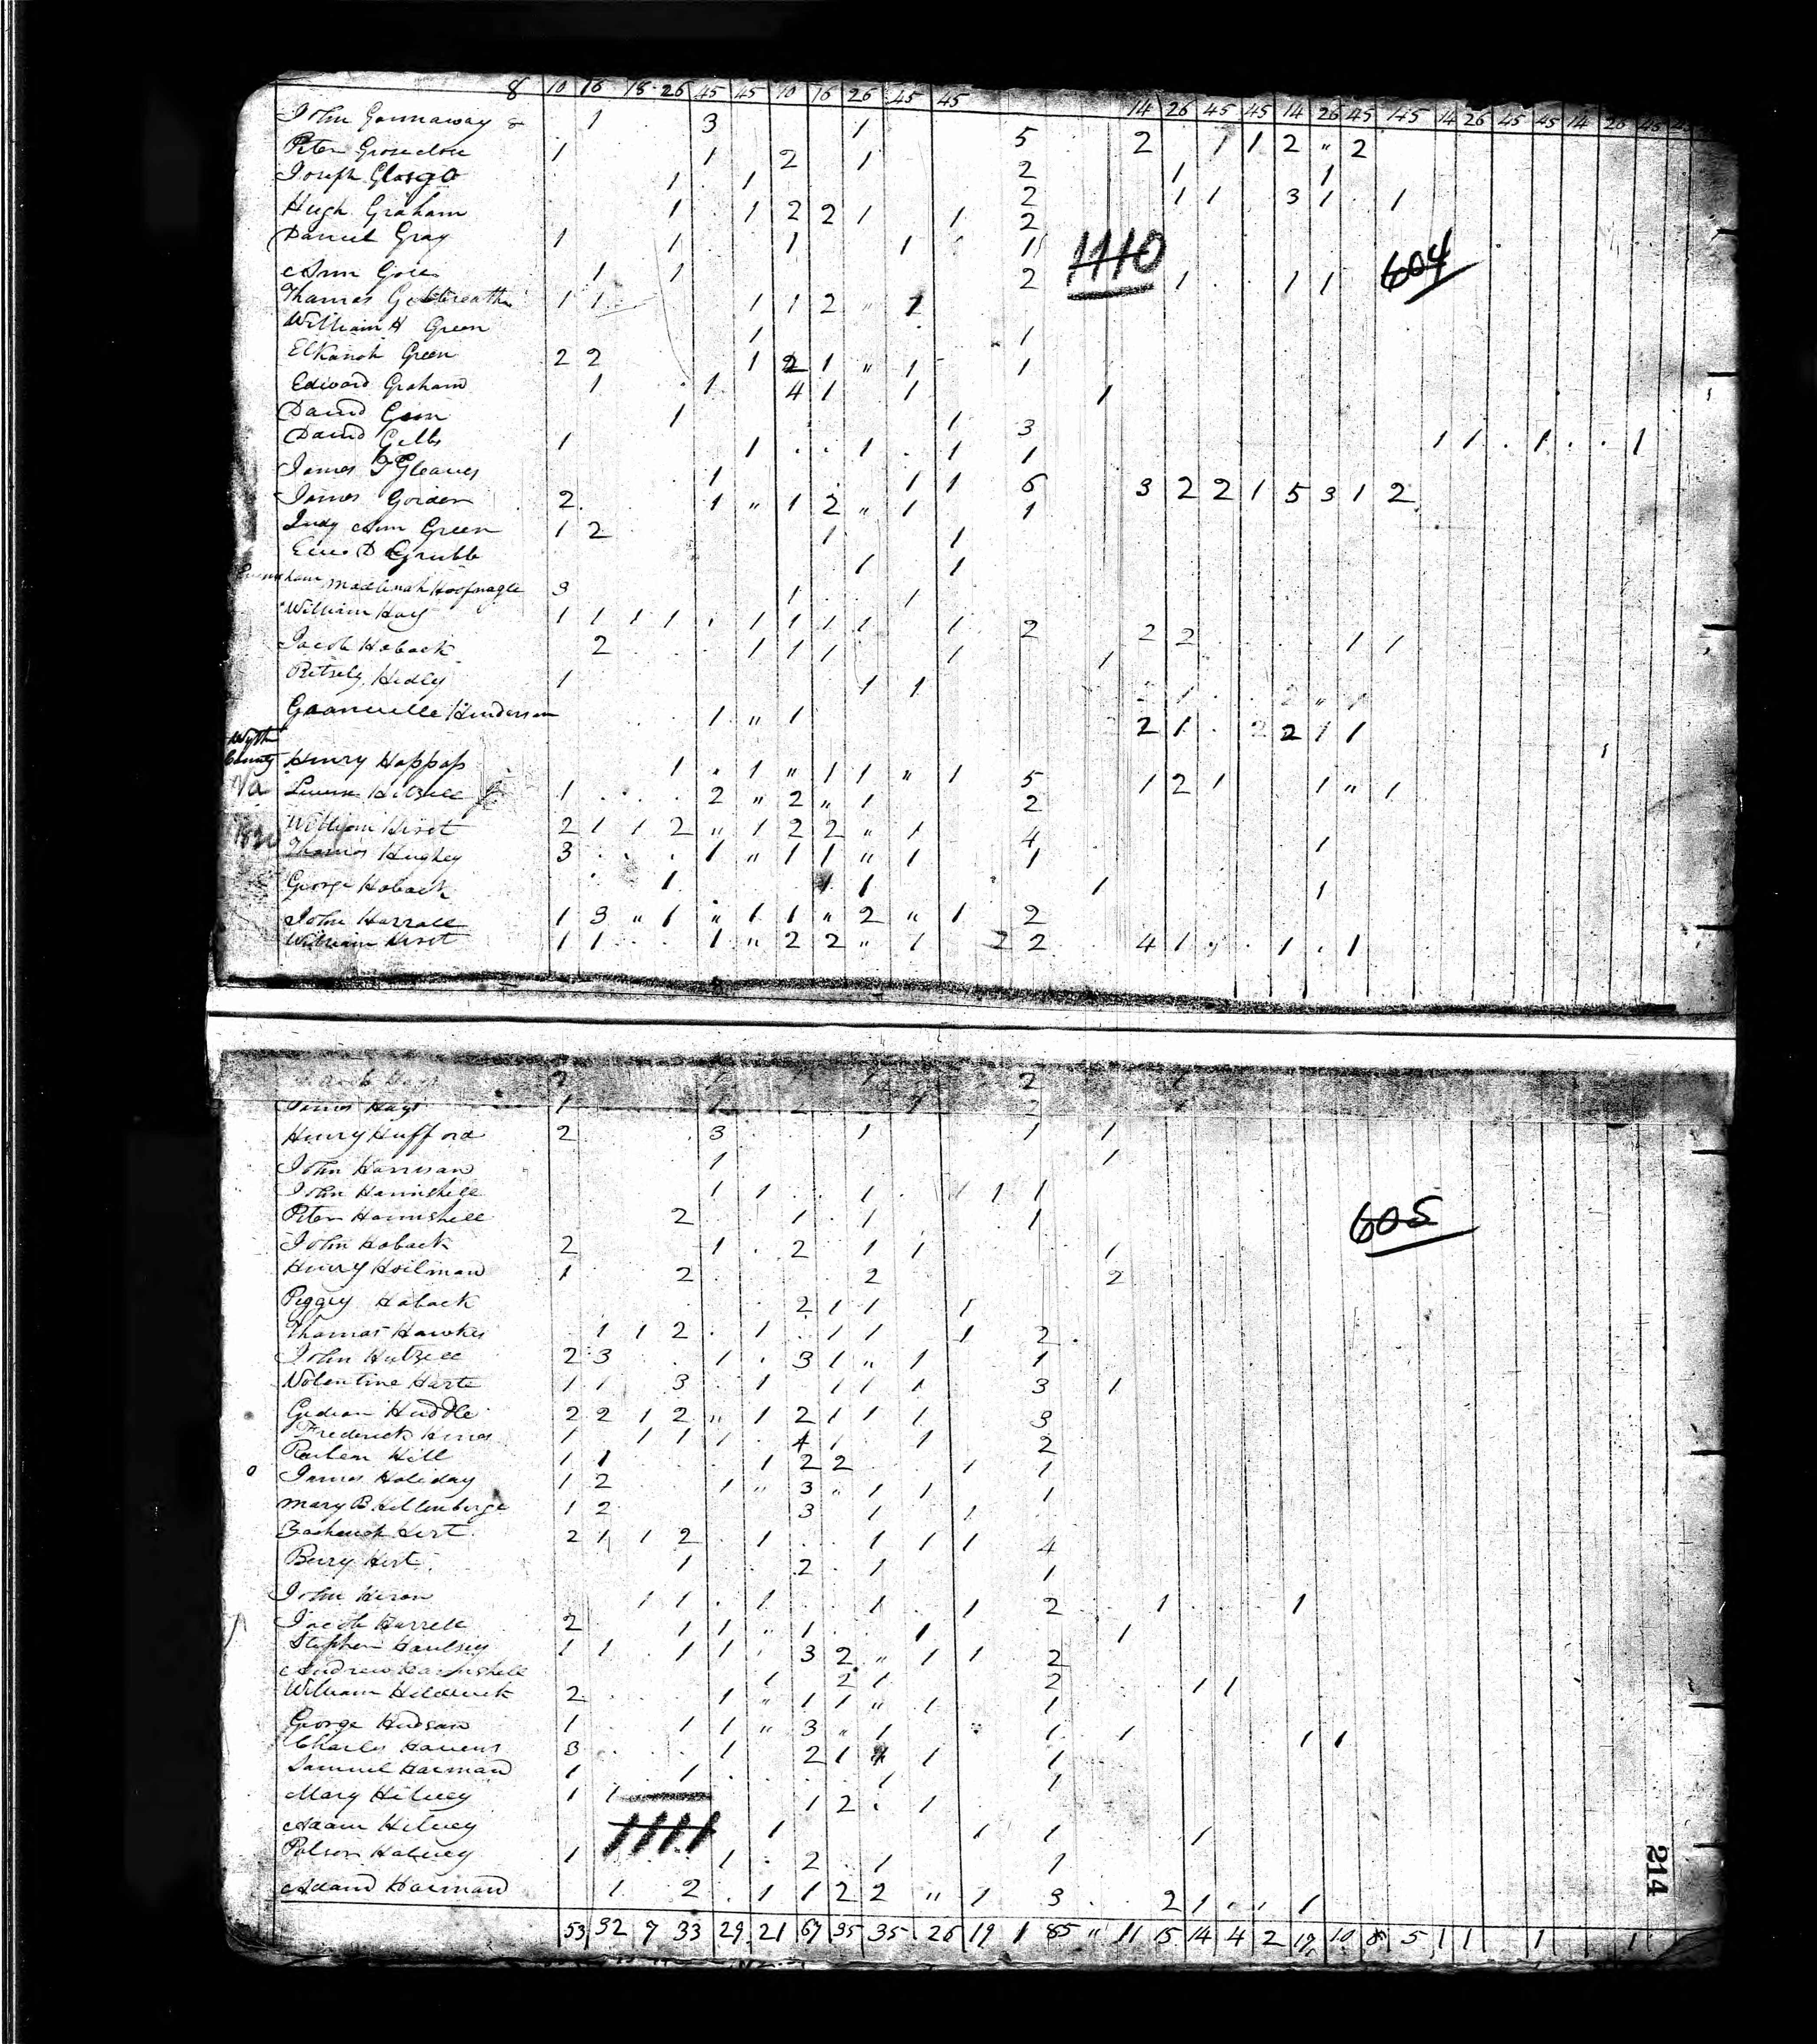 8 10 16 18 26 45 45 10 16 26 45 45 14 26 45 45 14 26 45 45 14 26 45 45 14 26 45
John Gannaway 1 3 1 5 2 1 1 2 " 2
Peter Grosedose 1 1 2 1 2 1 1
Joseph Glasgo 1 1 2 1 1 3 1 1
Hugh Graham 1 1 2 2 1 1 2
Daniel Gray 1 1 1 1 1
1110
604
Ann Gose 1 1 2 1 1 1
Thomas 1 1 1 1 2 " 1
William H Green 1 1
Elkanah Green 2 2 1 2 1 " 1 1
Edward Graham 1 1 4 1 1 1
David 1 1 3
David Gibbs 1 1 1 1 1 1 1 1 1
James T Gleaves 1 1 1 6 3 2 2 1 5 3 1 2
James Gorden 2 1 " 1 2 " 1 1
Judy Ann Green 1 2 1 1
Grubb 1 1
Madlenah Hoofnagle 3 1 1
William Hay 1 1 1 1 1 1 1 1 1 2 2 2 1 1
Jacob Hoback 2 1 1 1 1 1
Betsely Hedley 1 1 1 1 2 " 1
Granville Henderson 1 " 1 2 1 2 2 1 1
Wyth
County Henry Hoppas 1 1 " 1 1 " 1 5 1 2 1 1 " 1
Va 1 2 " 2 " 1 2
William Hirst 2 1 1 2 " 1 2 2 " 1 4 1
Thomas Hughey 3 1 " 1 1 " 1 1
George Hoback 1 1 1 1 1
John Harrall 1 3 " 1 " 1 1 " 2 " 1 2
William Hirst 1 1 1 " 2 2 " 1 2 2 4 1 " 1 1
Hays 2 1 1 1 2
James Hays 1 1 2 1 2
Henry Hufford 2 3 1 1 1
John Harman 1 1
John Harmshell 1 1 1 1 1 1
Peter Harmshell 2 1 1 1
605
John Hoback 2 1 2 1 1 1
Henry Hoilman 1 2 2 2
Peggy Hoback 2 1 1 1
Thomas Hawkes 1 1 2 1 1 1 1 2
John Hutzell 2 3 1 3 1 " 1 1
Volentine Harte 1 1 3 1 1 1 1 3 1
Gideon Huddle 2 2 1 2 " 1 2 1 1 1 3
Frederick Hines 1 1 1 1 4 1 1 2
Reuben Hill 1 1 1 2 2 1 1
James Holiday 1 2 1 " 3 " 1 1 1
Mary B Hellenberge 1 2 3 1 1
Hirt 2 1 1 2 1 1 1 1 4
Berry Hirt 1 2 1 1
John Heron 1 1 1 1 1 2 1 1
Jacob Harrell 2 1 1 " 1 1 1
Stephen Haulsey 1 1 1 1 3 2 " 1 1 2
Andrew Harmshell 1 2 1 2 1 1
William Helderick 2 1 " 1 1 " 1 1
George Hudson 1 1 1 " 3 " 1 1 1 1 1
Charles Havens 3 1 2 1 1 1
Samuel Harman 1 1 1 1
Mary Hilvey 1 1 1 2 1
1111
Adam Hilvey 1 1 1 1
Polson Halvey 1 1 2 1 1
Adam Harman 1 2 1 1 2 2 " 1 3 2 1 1
214
53 32 9 33 29 21 67 35 35 26 19 1 85 " 11 15 14 4 2 17 10 8 5 1 1 1 1